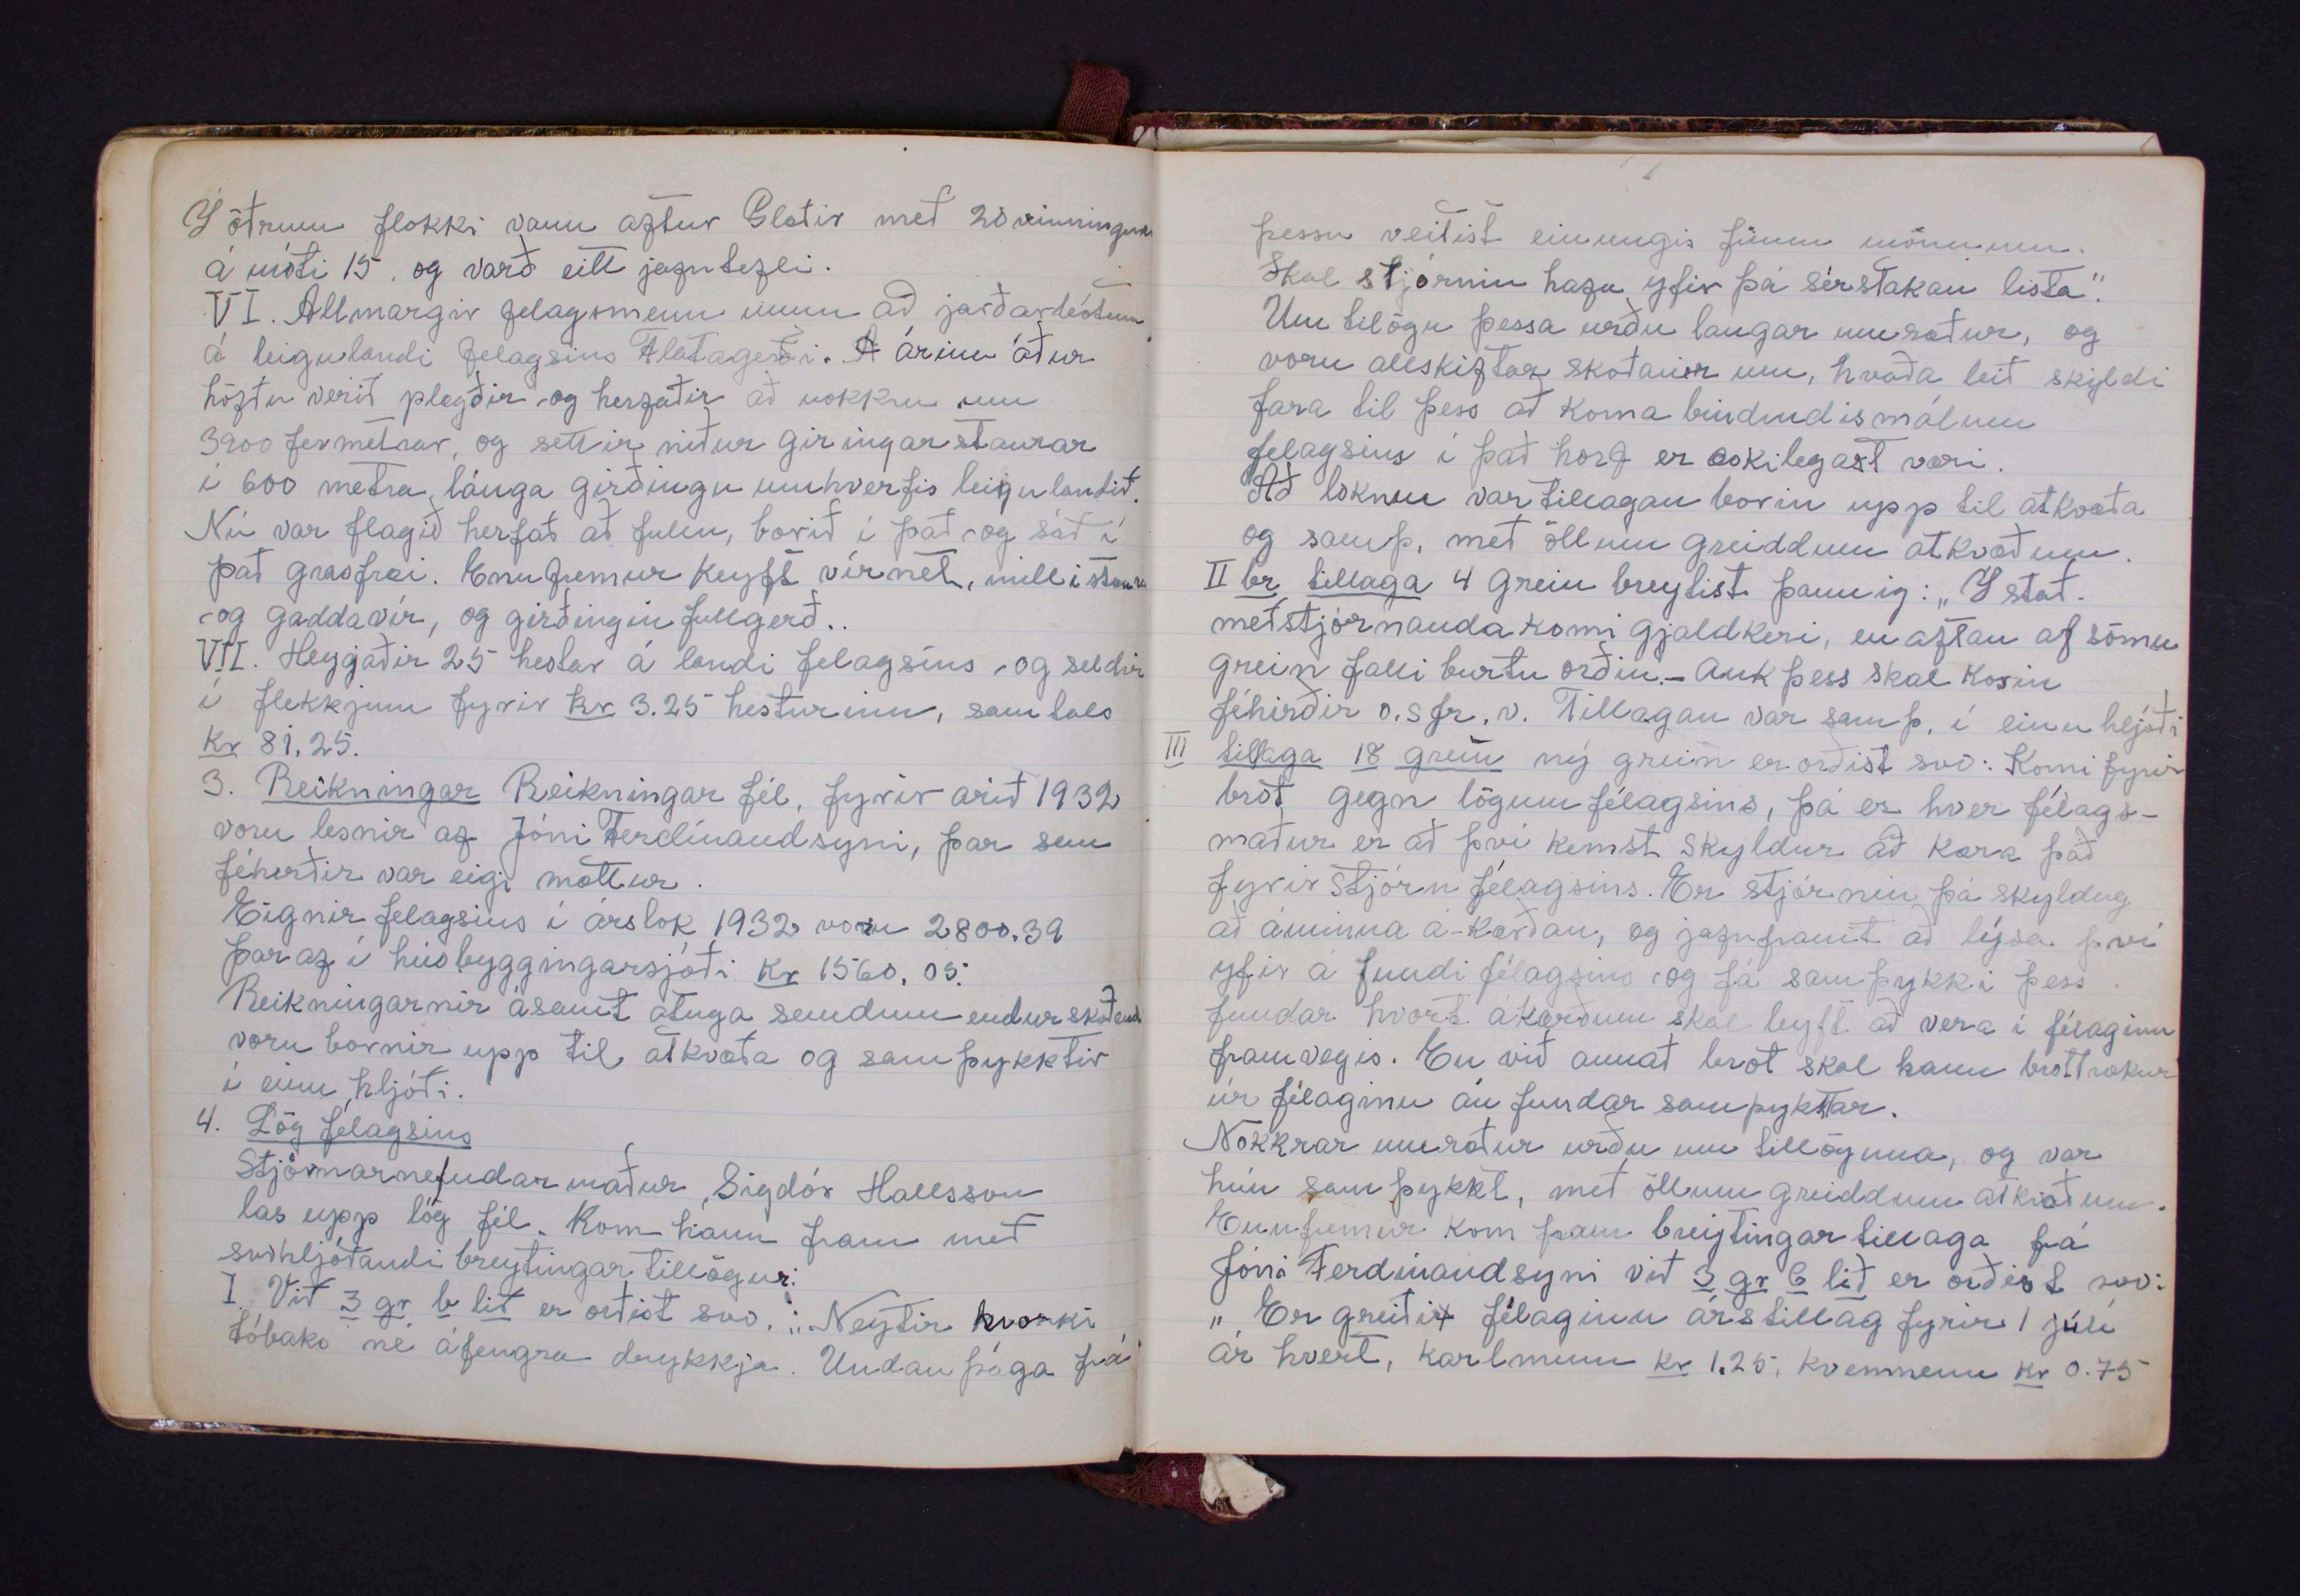 Í öðrum flokki vann aftur Gletir með 20 vinningum
á móti 15, og varð eitt jafntefli.
VI. Allmargir felagsmenn unnu að jarðarbótum
á leigulandi felagsins Flatagerði. Á árinu áður
höfðu verið plægðir og herfaðir að nokkru um
3900 fermetrar, og settir niður giringarstaurar
í 600 metra, lánga girðingu umhverfis leigulandið.
Nú var flagið herfað að fullu, borið í það og sáð í
það grasfræi. Ennfremur keyft vírnet, milli staura
og gaddavír, og girðingin fullgerð..
VII. Heyjaðir 25 hestar á landi felagsins og seldir
í flekkjum fyrir kr 3.25 hesturinn, samtals
kr 81,25.
3. Reikningar Reikningar fél, fyrir arið 1932
voru lesnir af Jóni Ferdínandsyni, þar sem
féhirðir var eigi mættur.
Eignir felagsins í árslok 1932 voru 2800,39
þar af í húsbyggingarsjóði Kr 1560,05.
Reikningarnir ásamt atuga semdum endurskoðenda
voru bornir upp til atkvæða og samþykktir
í einu hljóði.
4. Lög félagsins
Stjórnarnefndar maður, Sigdór Hallsson
las upp lög fél. Kom hann fram með
svohljóðandi breytingar tillögur:
I. Við 3 gr b lið er orðist svo. :„ Neytir hvorki
tóbaks né áfengra drykkja. Undan þága frá
þessu veitist einungis fimm mönnum.
Skal stjórnin hafa yfir þá sérstakan lista".
Um tilögu þessa urðu langar umræður, og
voru alls kiftar skoðanir um, hvaða leið skyldi
fara til þess að koma bindindismálum
felagsins í það horf er æskilegast væri.
Að loknum var tillagan borin upp til atkvæða
og samþ, með öllum greiddum atkvæðum.
II br tillaga 4 Grein breytist þannig: „ Í stað.
meðstjórnanda komi gjaldkeri, en aftan af sömu
grein falli burtu orðin. - Auk þess skal kosin
féhirðir o.s fr. v. Tillagan var samþ, í einu hljóði
III tillaga 18 grein ný grein er orðist svo: Komi fyrir
brot gegn lögum félagsins, þá er hver félags-
maður er að því kemst skyldur að kæra það
fyrir stjórn félagsins. Er stjórnin þá skyldug
að áminna á-kærðan, og jafnframt að lýsa því
yfir á fundi félagsins og fá samþykki þess
fundar hvort ákærðum skal leyft að vera í félaginu
framvegis. En við annað brot skal hann brottrækur
úr félaginu án fundar samþyktar.
Nokkrar umræður urðu um tillöguna, og var
hún samþykkt, með öllum greiddum atkvæðum.
Ennfremur kom fram breytingar tillaga frá
Jóni Ferdinandsyni við 3 gr 6 lið er orðist svo:
„ Er greiðir félaginu árstillag fyrir 1 júlí
ár hvert, karlmenn kr 1.25, kvenmenn kr 0.75